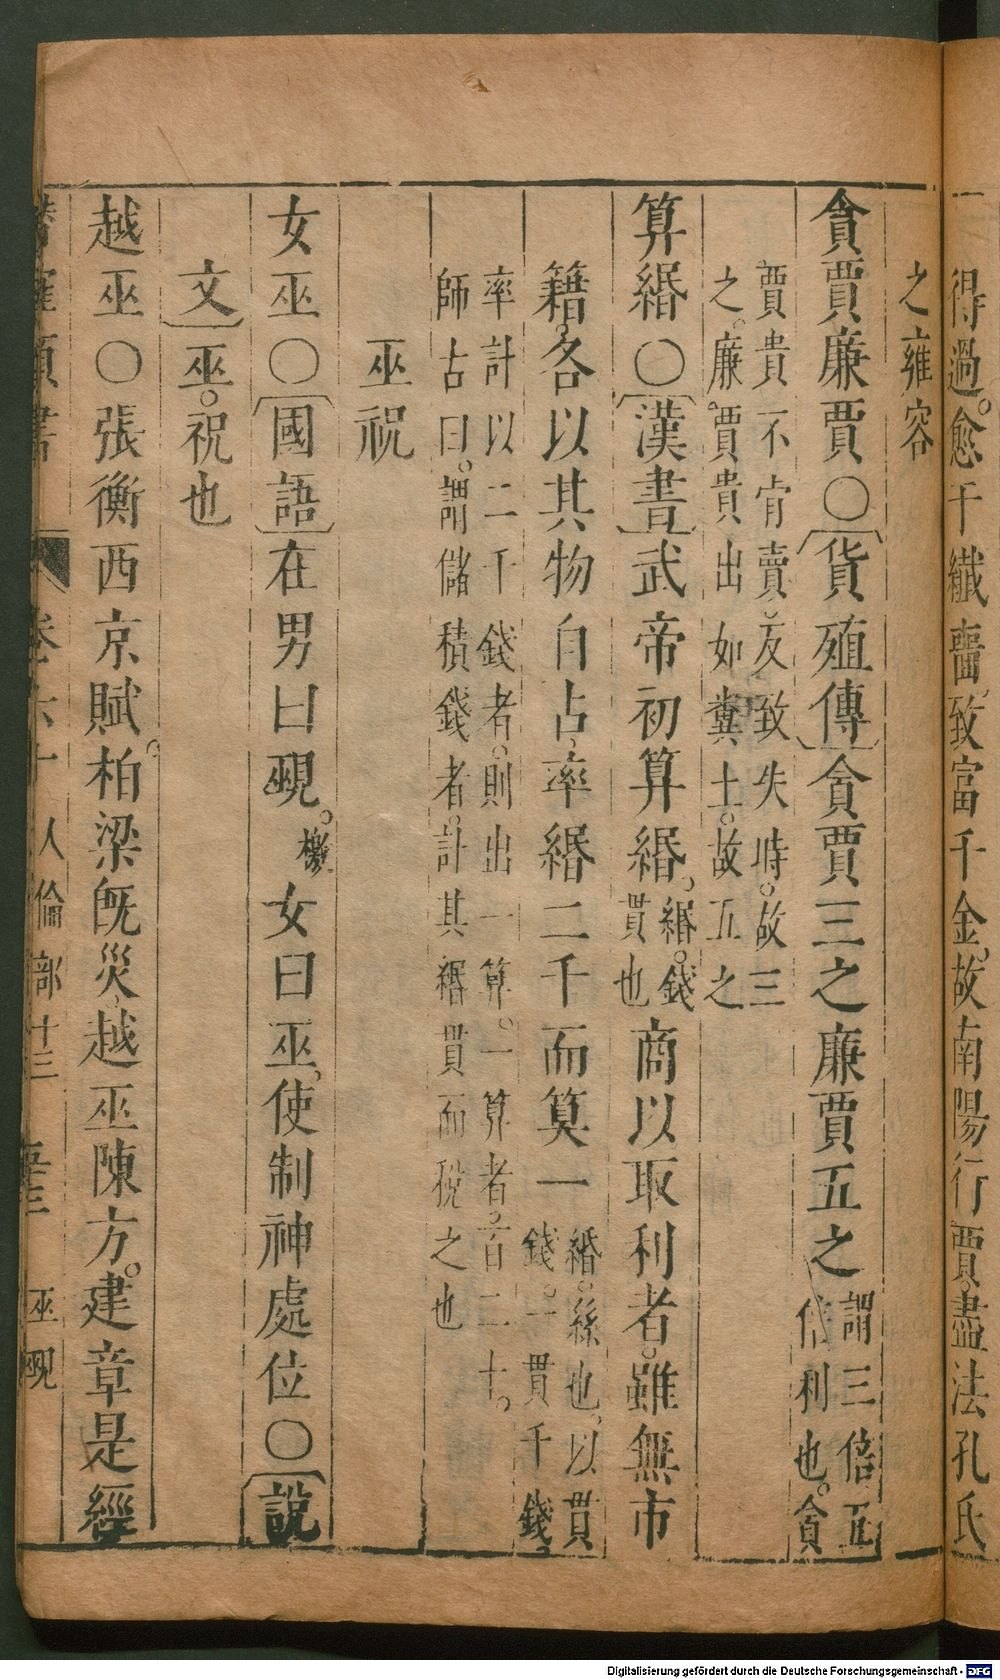 得過。愈于纖嗇。致富千金。故南陽行賈盡法孔氏
之雍容
貪賈廉賈〇貨殖傳貪賈三之廉賈五之謂三倍五
倍利也。貪
賈貴不肯賣。反致失時。故三
之。廉賈貴出如糞土。故五之
算緡〇漢書武帝初算緡。緡。錢
貫也商以取利者。雖無市
籍。各以其物自占。率緡二千而算一緡。絲也。以貫
錢。一貫千錢。
率計以二千錢者。則出一算。一算者。百二十。
師古曰。謂儲積錢者。計其緡貫而稅之也
巫祝
女巫〇國語在男曰覡。檄女曰巫。使制神處位〇說
文巫。祝也
越巫〇張衡西京賦。柏梁旣災。越巫陳方。建章是經
卷六十 人倫部十三 巫覡
Digitalisierung gefördert durch die Deutsche Forschungsgemeinschaft - DFG